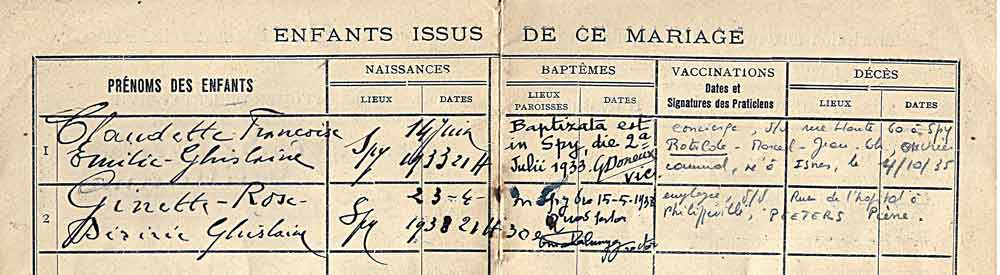 ENFANTS ISSUS DE CE MARIAGE
PRÉNOMS DES ENFANTS
NAISSANCES
BAPTÊMES
VACCINATIONS
Dates et
Signatures des Praticiens
DÉCÈS
LIEUX
DATES
LIEUX
PAROISSES
DATES
LIEUX
DATES
1
Claudette Françoise
Emilie-Ghislaine
Spy
14 Juin
1933 21 H
Baptizata est
in Spy, die 2a
Julii 1933. G Doneux
vic
concierge, rue Haute 60 à Spy
Marcel-Jean-Gh, ouvrier
communal, né à Isnes, le 4/10/35
2
Ginette-Rose-
Désirée Ghislaine
Spy
23-4-
1938 21H30
In Spy 15-5-1938
employée, Rue de l'hopital à
Philippeville, PEETERS Pierre.